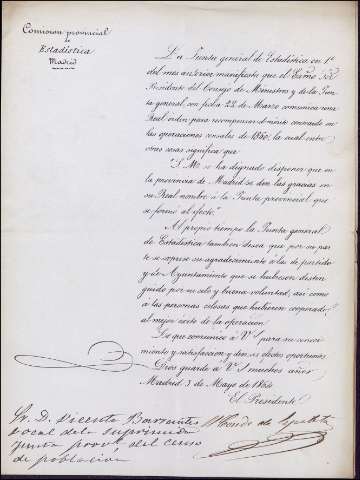 Comision provincial
de
Estadística
Madrid
La Junta general de Estadística en 1º
del mes anterior manifiesta que el Excmo Sor
Presidente del Consejo de Ministros y de la Jun-
ta general, con fecha 22 de Marzo comunica una
Real orden para recompensar el mérito contraido en
las operaciones censales de 1860, la cual entre
otras cosas significa que
"S. M. se ha dignado disponer que en
la provincia de Madrid se den las gracias en
su Real nombre á la Junta provincial que
se formó al efecto."
Al propio tiempo la Junta general
de Estadística tambien desea que por su par-
te se esprese su agradecimiento á las de partido
y de Ayuntamiento que se hubiesen distin-
guido por su celo y buena voluntad, asi como
á las personas celosas que hubieren cooperado
al mejor éxito de la operacion.
Lo que comunico á V. S. para su conoci-
miento y satisfaccion y demas efectos oportunos.
Dios guarde á V. S. muchos años
Madrid 3 de Mayo de 1864
El Presidente
Sr. D. Vicente Barrantes
vocal de la suprimida
junta provl. del censo
de poblacion